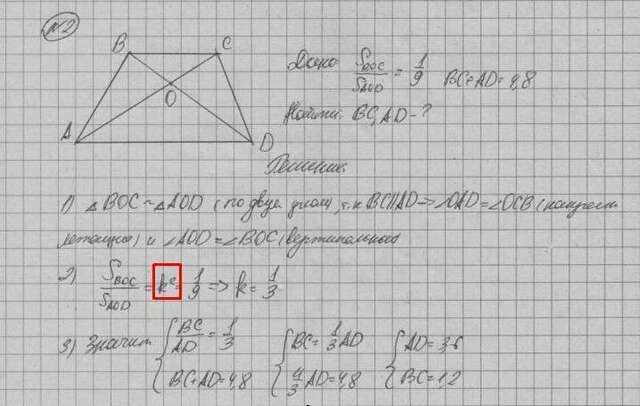 №2
B C
O
A D
Дано: S_BOC/S_AOD = 1/9 BC+AD=4,8
Найти: BC, AD - ?
Решение:
1) △BOC ~ △AOD (по двум углам, т.к BC||AD => ∠OAD = ∠OCB (накрест
лежащие) и ∠AOD = ∠BOC (вертикальные)
2) S_BOC/S_AOD = k² = 1/9 => k = 1/3
3) Значит { BC/AD = 1/3 { BC = 1/3 AD { AD = 3,6
BC+AD=4,8 4/3 AD = 4,8 BC = 1,2